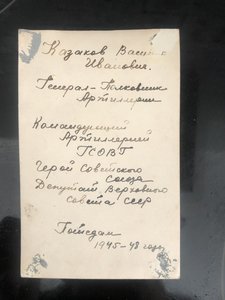 Казаков Василий
Иванович.
Генерал-Полковник
Артиллерии
Командующий
Артиллерией
ГСОВГ
Герой Советского
Союза
Депутат Верховного
Совета СССР
Потсдам
1945-48 годы